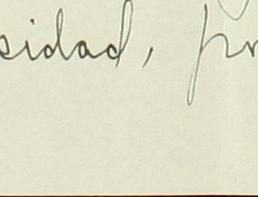 sidad, pr